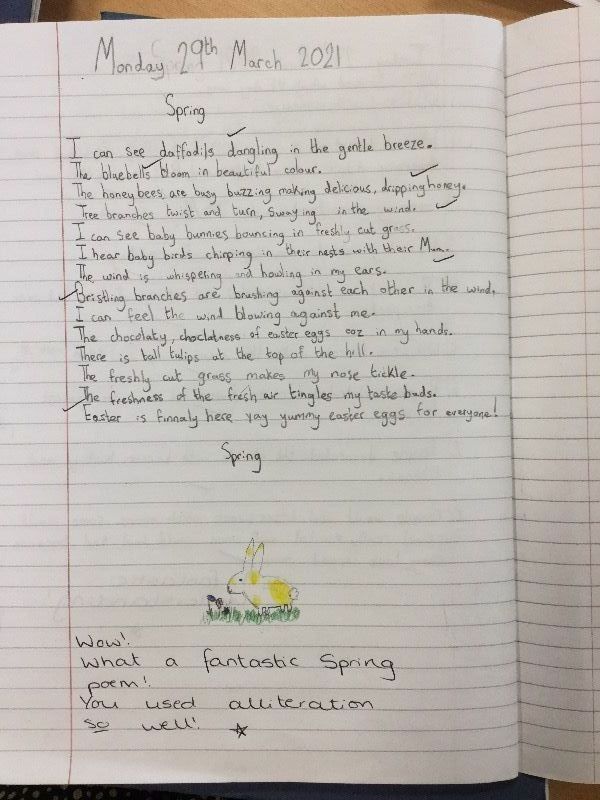 Monday 29th March 2021
Spring
I can see daffodils dangling in the gentle breeze.
The bluebells bloom in beautiful colour.
The honeybees are busy buzzing making delicious, dripping honey.
Tree branches twist and turn, swaying in the wind.
I can see baby bunnies bouncing in freshly cut grass.
I hear baby birds chirping in their nests with their Mum.
The wind is whispering and howling in my ears.
Bristling branches are brushing against each other in the wind.
I can feel the wind blowing against me.
The chocolaty, choclatness of easter eggs ooz in my hands.
There is tall tulips at the top of the hill.
The freshly cut grass makes my nose tickle.
The freshness of the fresh air tingles my taste buds.
Easter is finnaly here yay yummy easter eggs for everyone!
Spring
Wow!
What a fantastic Spring
poem!
You used alliteration
so well!